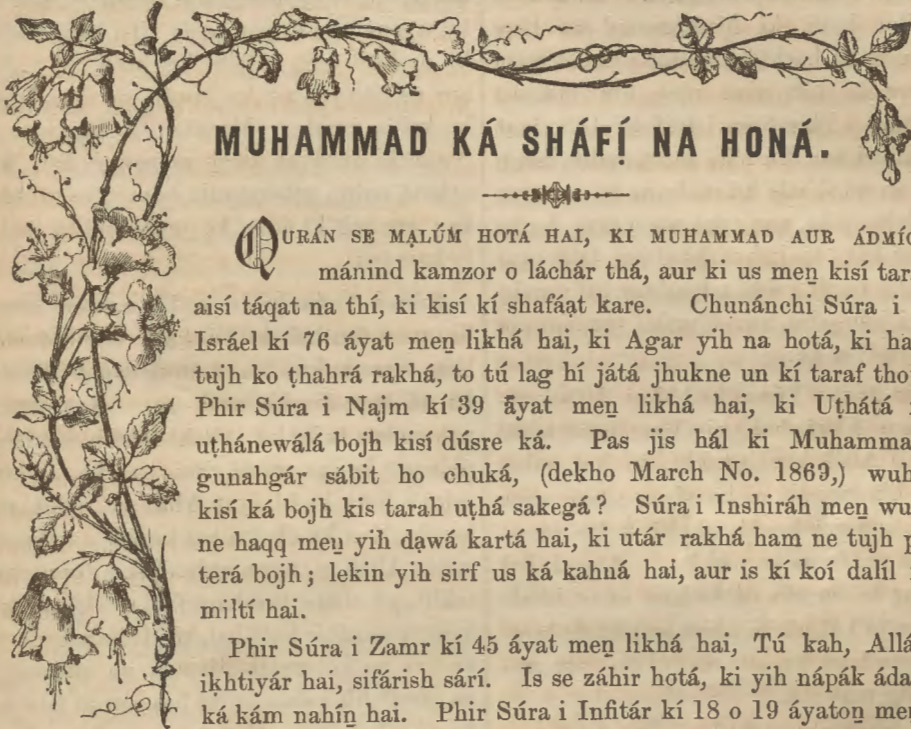 MUHAMMAD KÁ SHÁFÍ NA HONÁ.
QURÁN SE MẠLÚM HOTÁ HAI, KI MUHAMMAD AUR ÁDMÍO
mánind kamzor o láchár thá, aur ki us men̲ kisí tar
aisí táqat na thí, ki kisí kí shafáạt kare. Chunánchi Súra i
Isráel kí 76 áyat men̲ likhá hai, ki Agar yih na hotá, ki ha
tujh ko ṭhahrá rakhá, to tú lag hí játá jhukne un kí taraf tho
Phir Súra i Najm kí 39 áyat men̲ likhá hai, ki Uṭhátá
uṭhánewálá bojh kisí dúsre ká. Pas jis hál ki Muhamma
gunahgár sábit ho chuká, (dekho March No. 1869,) wuh
kisí ká bojh kis tarah uṭhá sakegá? Súra i Inshiráh men̲ wu
ne haqq men̲ yih dạwá kartá hai, ki utár rakhá ham ne tujh p
terá bojh; lekin yih sirf us ká kahná hai, aur is kí koí dalíl
miltí hai.
Phir Súra i Zamr kí 45 áyat men̲ likhá hai, Tú kah, Allá
iḳhtiyár hai, sifárish sárí. Is se záhir hotá, ki yih nápák áda
ká kám nahín̲ hai. Phir Súra i Infitár kí 18 o 19 áyaton̲ men